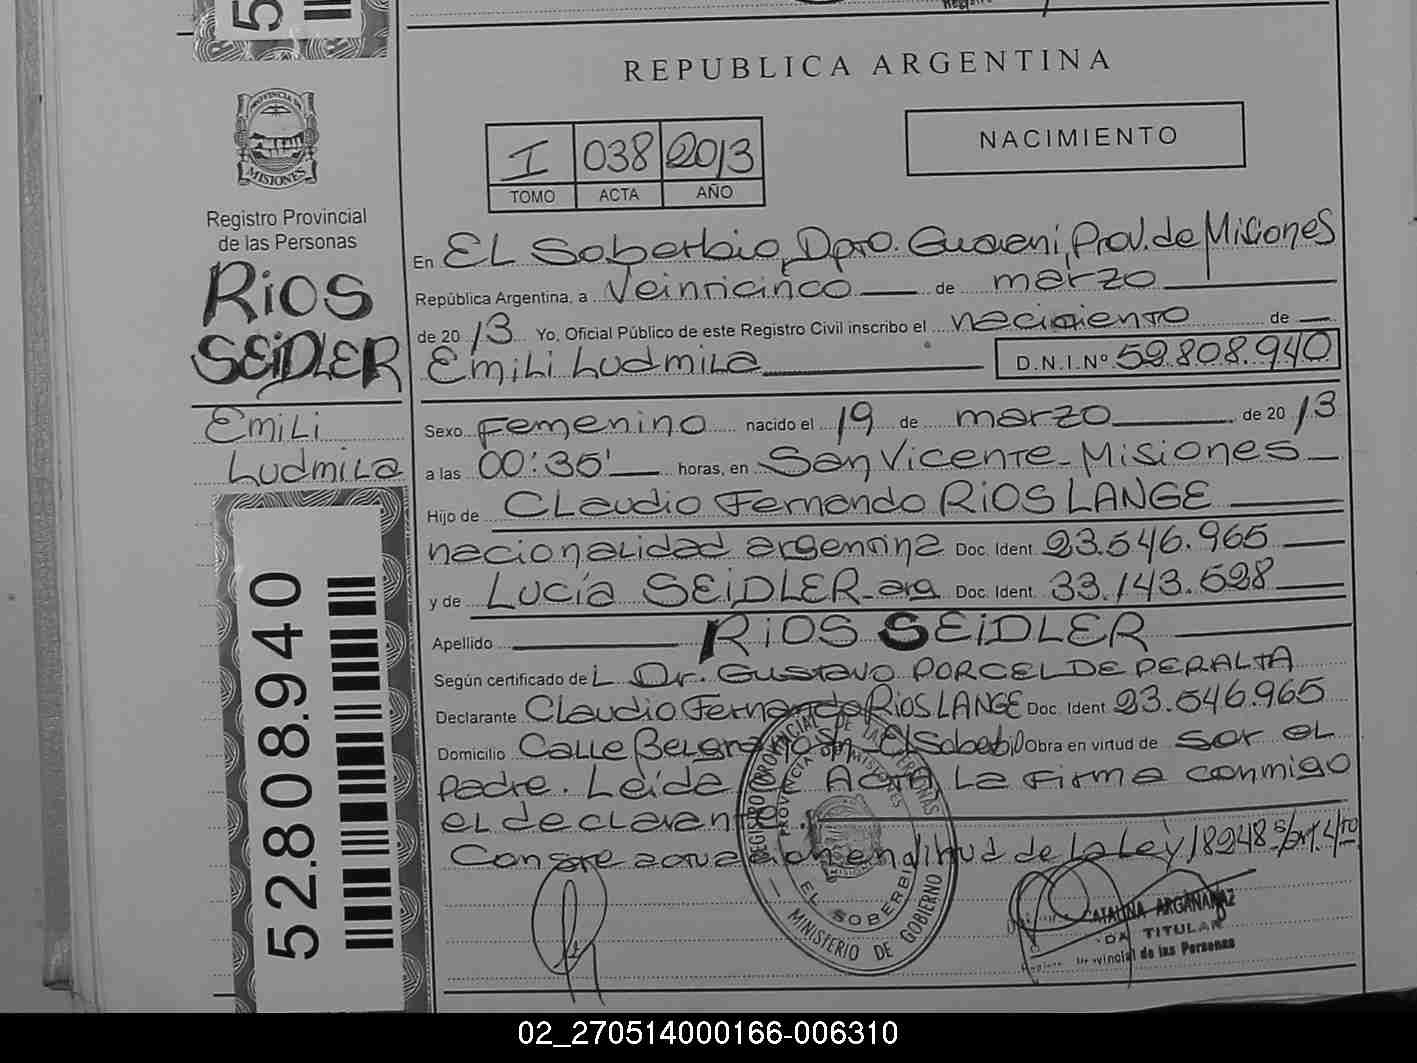 REPUBLICA ARGENTINA
PROVINCIA DE
MISIONES
Registro Provincial
de las Personas
RiOS
SEiDLER
Emili
Ludmila
52.808.940
I 038 2013
TOMO ACTA AÑO
NACIMIENTO
En EL Soberbio, Dpto. Guarani, Prov. de Misiones
República Argentina, a Veinticinco de marzo
de 2013 Yo, Oficial Público de este Registro Civil inscribo el nacimiento de
Emili Ludmila D.N.I.Nº 52.808.940
Sexo Femenino nacido el 19 de marzo de 2013
a las 00:35' horas, en San Vicente - Misiones
Hijo de Claudio Fernando RiOS LANGE
nacionalidad argentina Doc. Ident. 23.546.965
y de Lucía SEiDLER - arg Doc. Ident. 33.143.528
Apellido RiOS SEiDLER
Según certificado de L Dr. Gustavo PORCEL DE PERALTA
Declarante Claudio Fernando Rios LANGE Doc. Ident 23.546.965
Domicilio Calle Belgrano El Soberbio Obra en virtud de ser el
padre. Leída el Acta La firma conmigo
el declarante.
Conste actuación en virtud de la Ley 18248 s/art. 4to
REGISTRO PROVINCIAL DE LAS PERSONAS
PROVINCIA DE MISIONES
EL SOBERBIO
MINISTERIO DE GOBIERNO
CATALINA ARGAÑARAZ
TITULAR
Provincial de las Personas
02_270514000166-006310